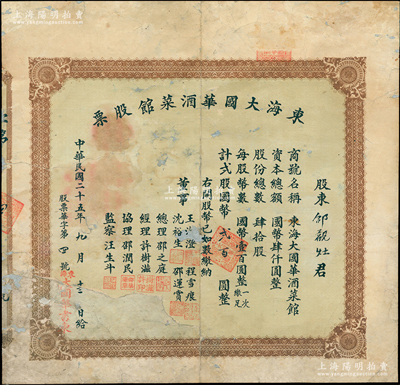 上海陽明拍賣
www.yangmingauction.com
東海大國華酒菜館股票
股東邰觀灶君
商號名稱 東海大國華酒菜館
資本總額 國幣肆仟圓整
股份總數 肆拾股
每股幣數 國幣壹百圓整 一次繳足
計弍股國幣 弍百 圓整
右開股幣已如數繳納
董事
沈裕生 邵運賓
程雪痕
總理邵之庭
經理許樹滋
協理邵潤民
監察汪生斗
中華民國二十五年九月十三日給
股票華字第四號